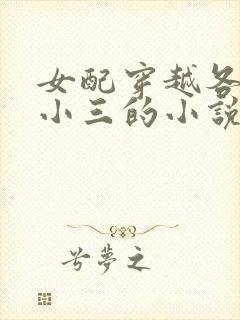 女配穿越各
小三的小說
兮夢之